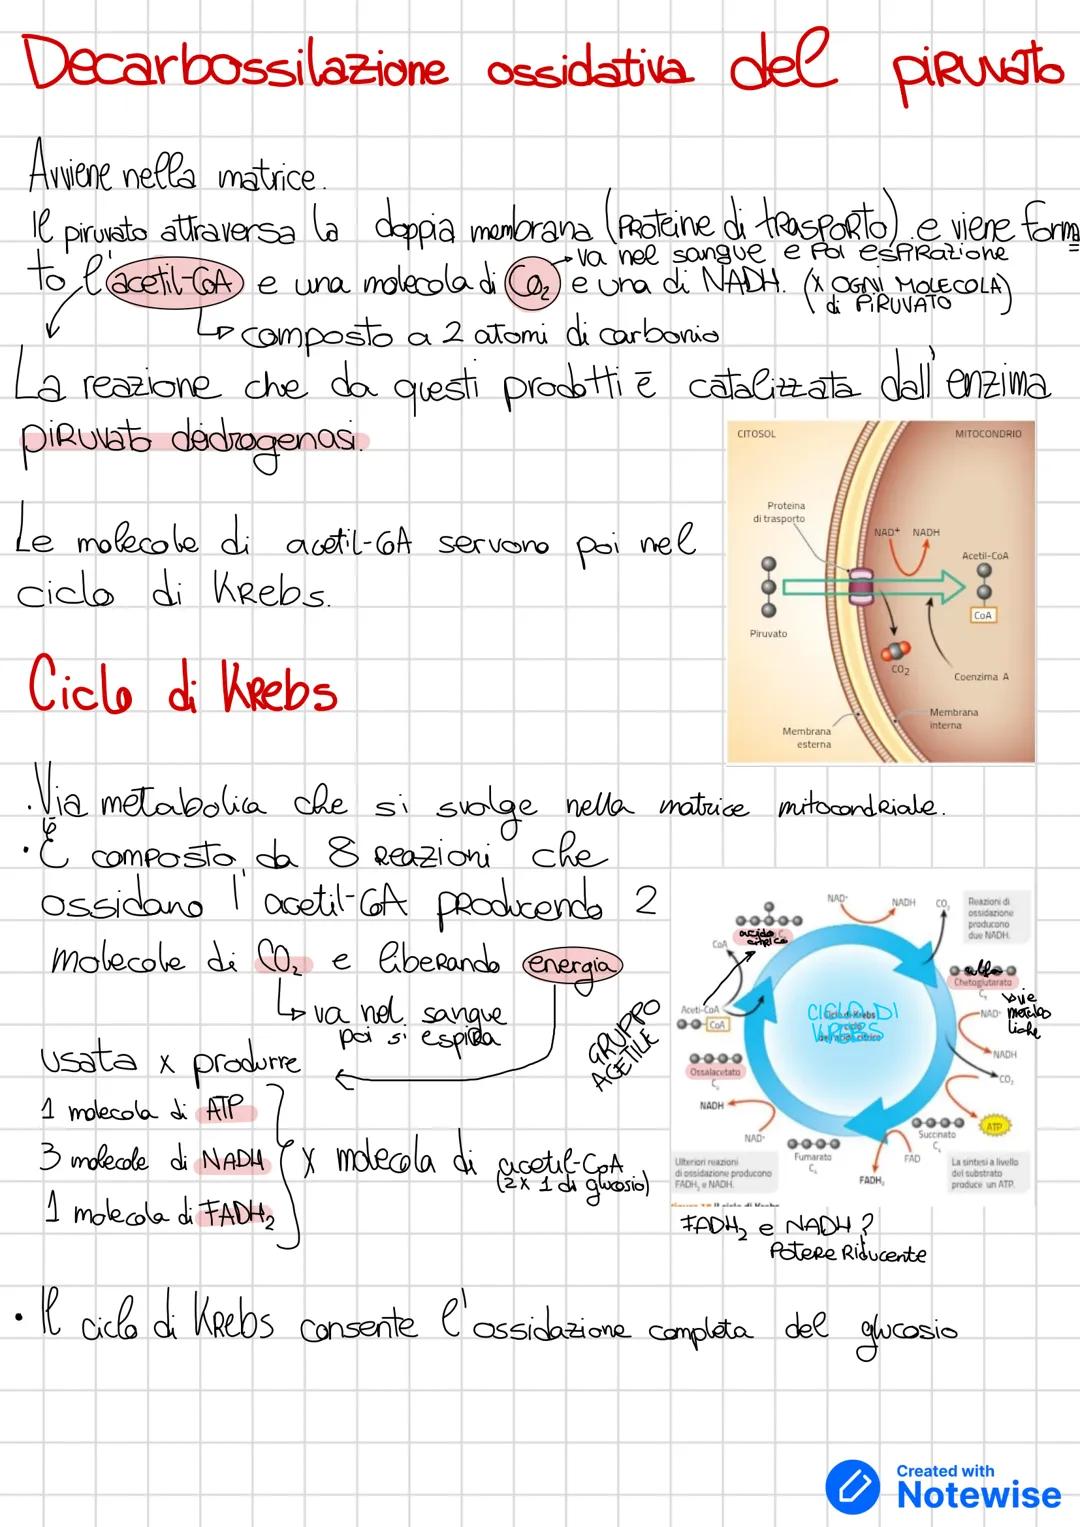 Decarbossilazione ossidativa del piruvato
Avviene nella matrice.
Il piruvato attraversa la doppia membrana (proteine di trasporto) e viene forma
va nel sangue e poi espirazione
to l'acetil-CoA e una molecola di CO₂ e una di NADH. (x OGNI MOLECOLA
di PIRUVATO)
composto a 2 atomi di carbonio
La reazione che da questi prodotti è catalizzata dall'enzima
piruvato deidrogenasi.
CITOSOL
MITOCONDRIO
Proteina
di trasporto
NAD⁺ NADH
Acetil-CoA
CoA
Piruvato
CO₂
Coenzima A
Membrana
interna
Membrana
esterna
Le molecole di acetil-CoA servono poi nel
ciclo di Krebs.
Ciclo di Krebs
· Via metabolica che si svolge nella matrice mitocondriale.
· È composto da 8 reazioni che
ossidano l'acetil-CoA producendo 2
molecole di CO₂ e liberando energia
va nel sangue
poi si espira
usata x produrre
1 molecola di ATP
3 molecole di NADH
1 molecola di FADH₂
x molecola di acetil-CoA
(2 x 1 di glucosio)
GRUPPO
ACETILE
NAD⁺
NADH
CO₂
Reazioni di
ossidazione
producono
due NADH.
acido
citrico
CoA
alfa
Chetoglutarato
C₅
vie
metabo
liche
Aceti-CoA
CoA
CICLO DI
KREBS
Ciclo di Krebs
o ciclo
dell'acido citrico
NAD⁺
NADH
CO₂
Ossalacetato
C₄
NADH
NAD⁺
ATP
Succinato
C₄
Fumarato
C₄
FAD
FADH₂
La sintesi a livello
del substrato
produce un ATP.
Ulteriori reazioni
di ossidazione producono
FADH₂ e NADH.
FADH₂ e NADH?
Potere Riducente
· Il ciclo di Krebs consente l'ossidazione completa del glucosio
Created with
Notewise